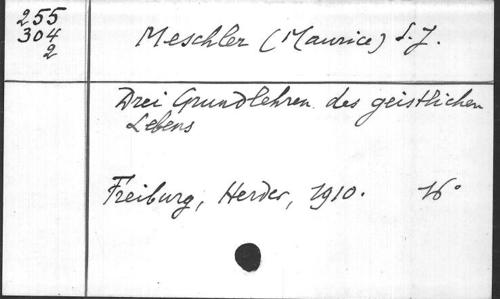 255
304
2
Meschler (Maurice) S.J.
Drei Grundlehren des geistlichen
Lebens
Freiburg, Herder, 1910. 16°